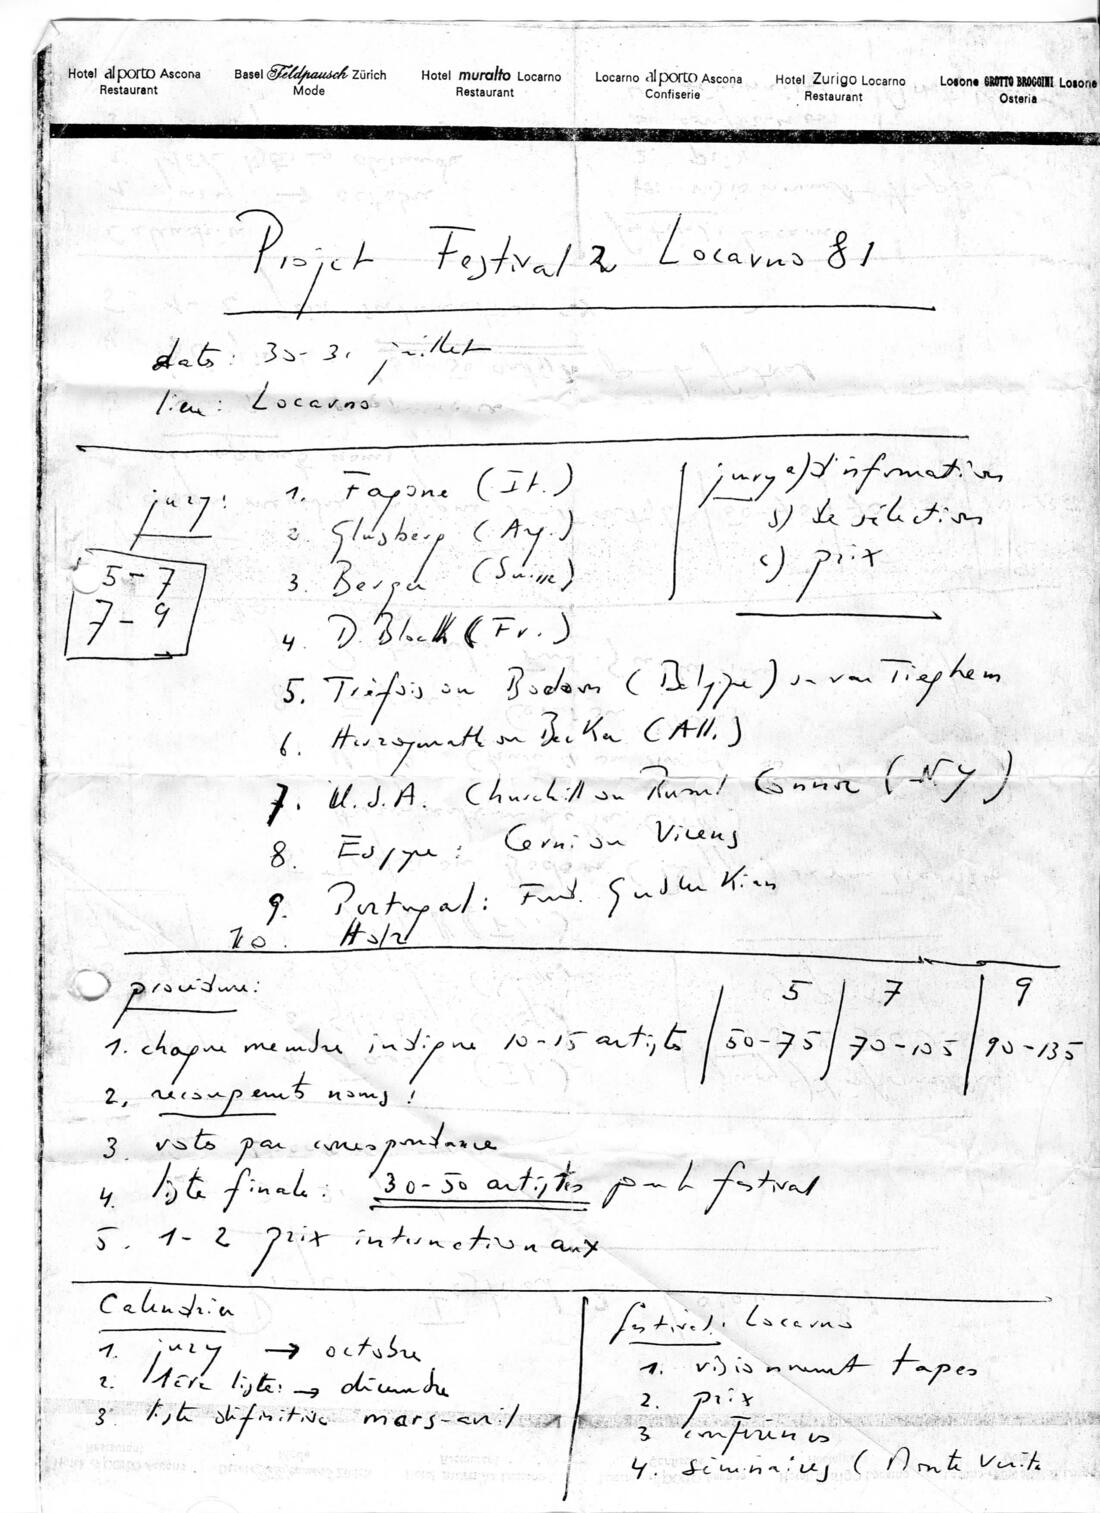 Hotel al porto Ascona
Restaurant
Basel Feldpausch Zürich
Mode
Hotel muralto Locarno
Restaurant
Locarno al porto Ascona
Confiserie
Hotel Zurigo Locarno
Restaurant
Losone GROTTO BROGGINI Losone
Osteria
Projet Festival 2 Locarno 81
date: 30-31 juillet
lieu: Locarno
jury:
5-7
7-9
1. Fagone (It.)
2. Glusberg (Arg.)
3. Berger (Suisse)
4. D. Bloch (Fr.)
5. Tréfois ou Bodson (Belgique) ou van Tieghem
6. Herzogenrath ou Becker (All.)
7. U.S.A. Churchill ou Russel Connor (NY)
8. Espgne: Cerni ou Vicens
9. Portugal: Fund. Gulbenkian
10. Holz
jury a) d'information
b) de sélection
c) prix
procédure:
1. chaque membre indique 10-15 artistes
5 | 7 | 9
50-75 | 70-105 | 90-135
2. recoupements noms!
3. vote par correspondance
4. liste finale: 30-50 artistes pour le festival
5. 1-2 prix internationaux
Calendrier
1. jury → octobre
2. 1ère liste: → décembre
3. liste définitive mars-avril
festival: Locarno
1. visionnement tapes
2. prix
3 conférences
4. séminaires (Monte Verità